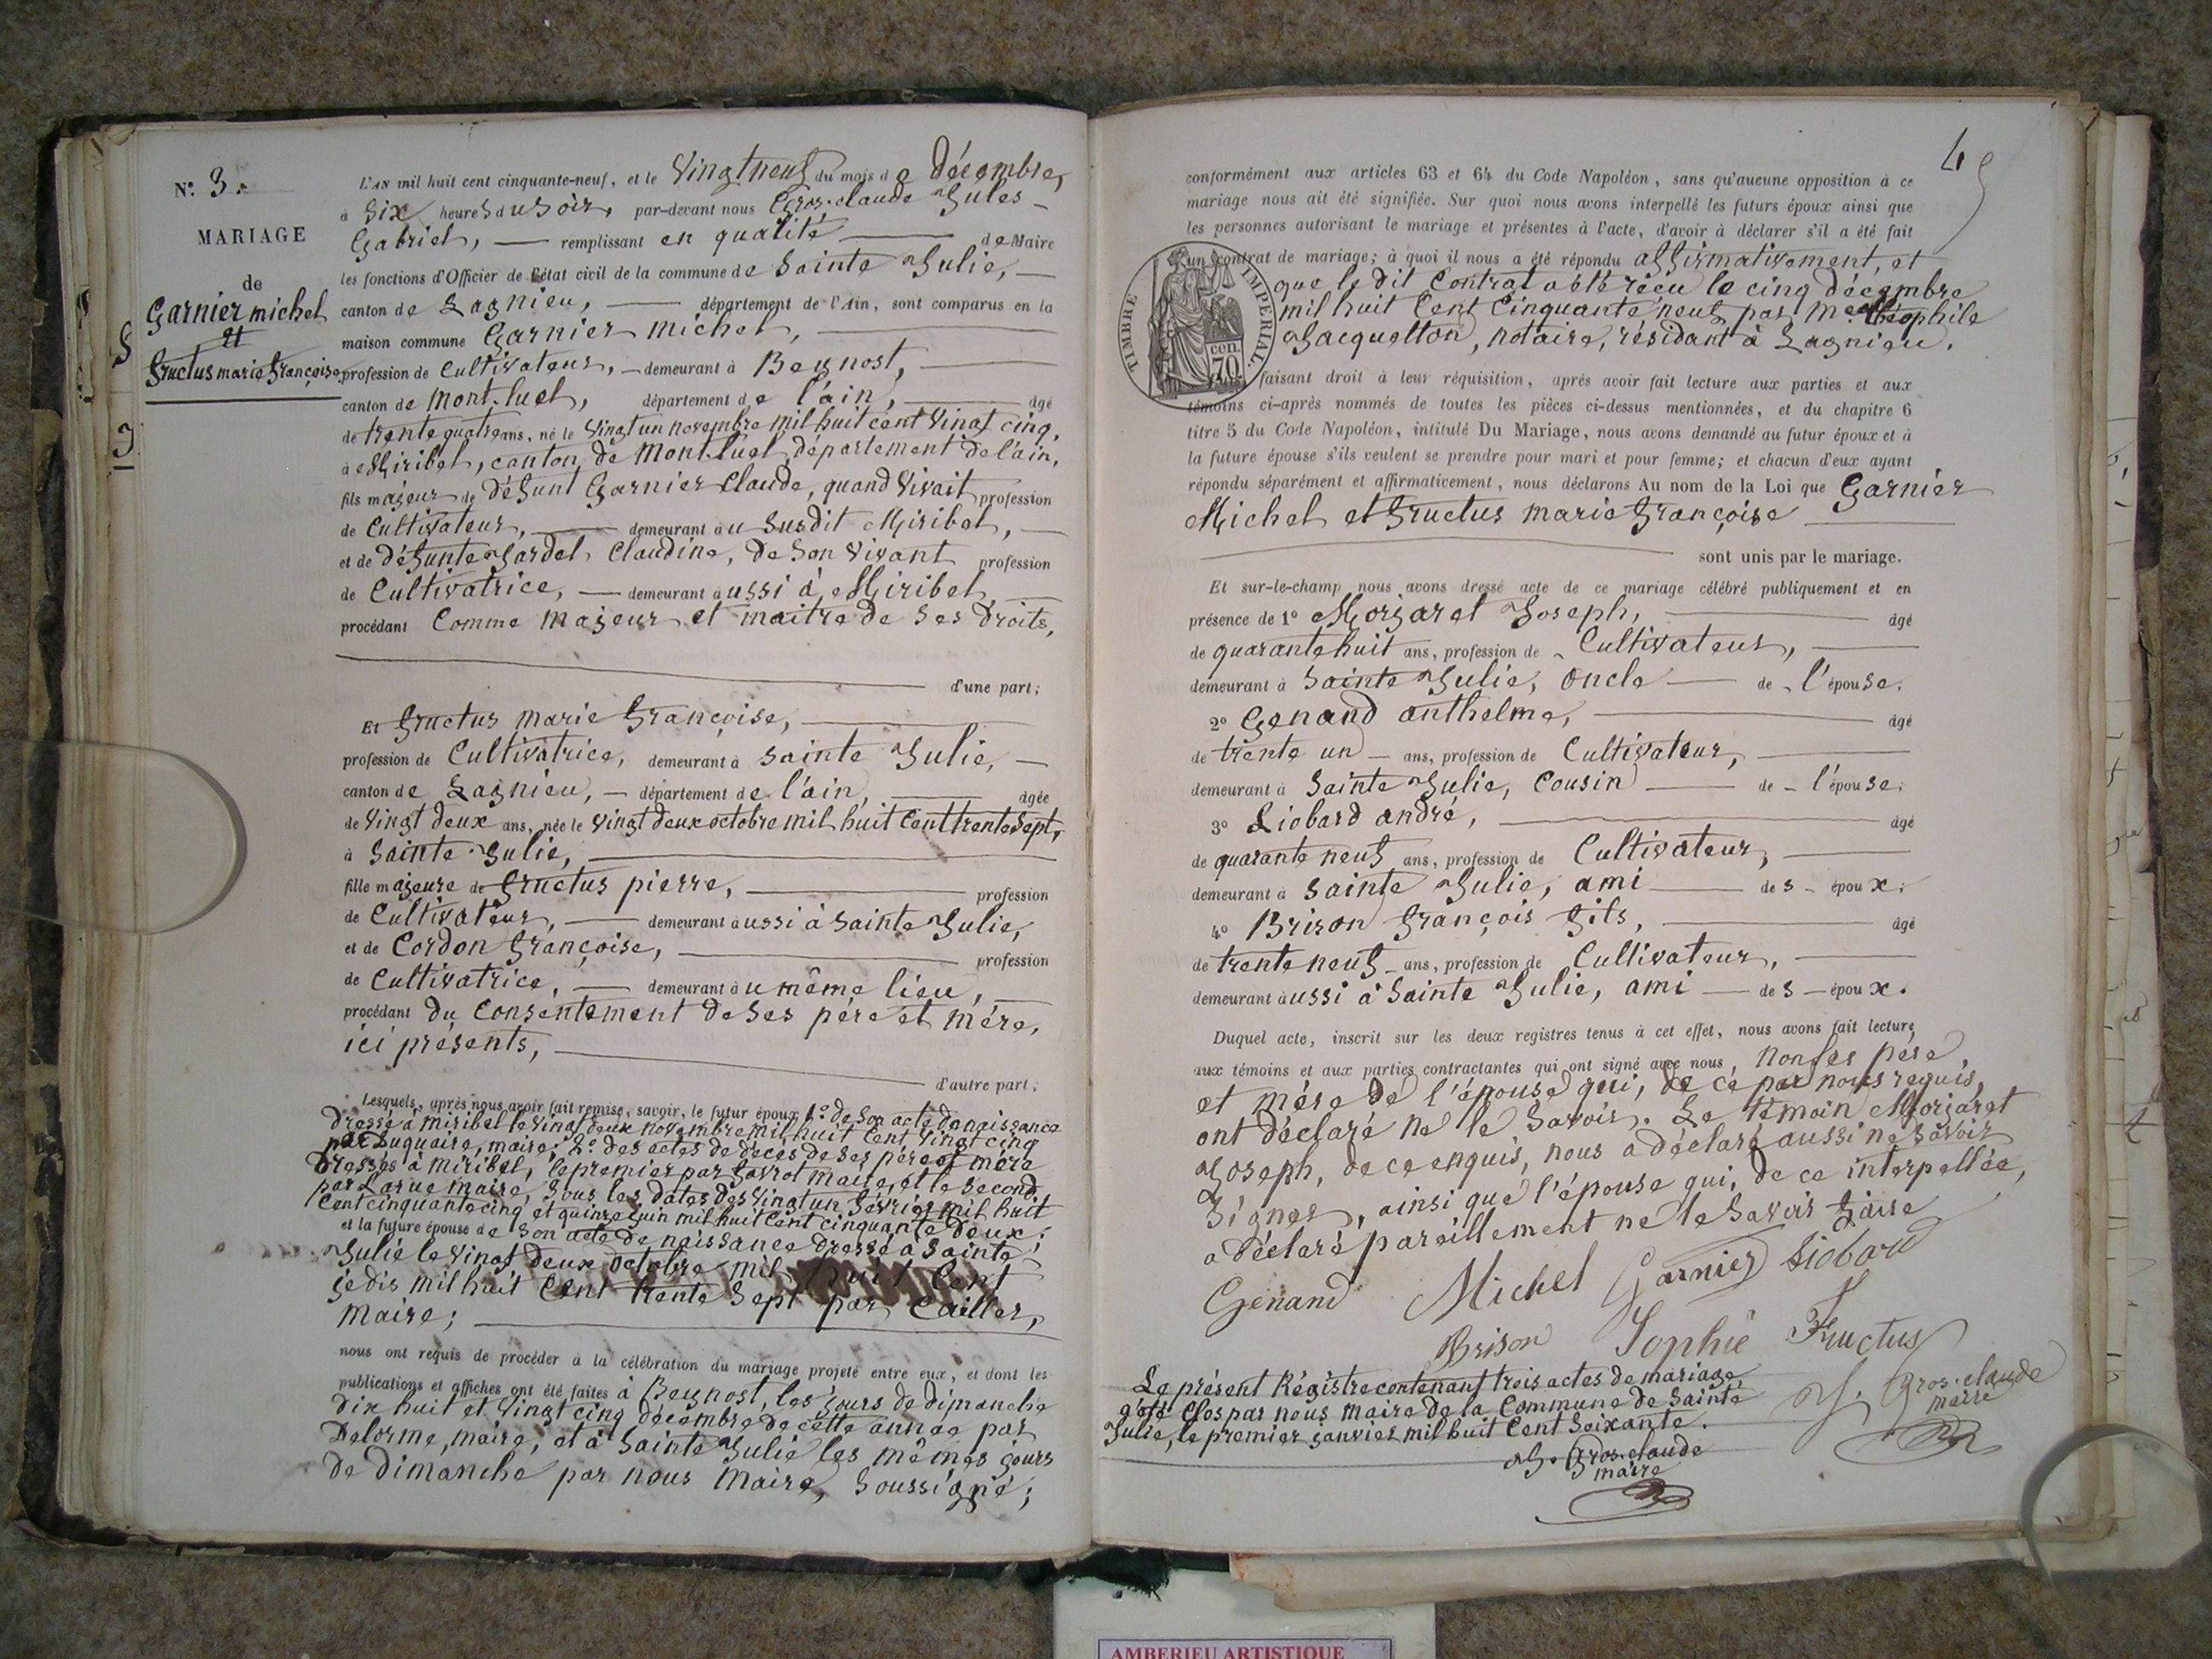 N.° 3.
MARIAGE
de
Garnier michel
et
fructus marie françoise
L'AN mil huit cent cinquante-neuf, et le vingt neuf du mois de décembre,
à six heures du soir, par-devant nous Gros-claude Jules-
Gabriel, remplissant en qualité de Maire
les fonctions d'Officier de l'état civil de la commune de Sainte Julie,
canton de Lagnieu, département de l'Ain, sont comparus en la
maison commune Garnier michel,
profession de Cultivateur, demeurant à Beynost,
canton de mont-luel, département de l'ain, âgé
de trente quatre ans, né le vingt un novembre mil huit cent vingt cinq,
à Miribel, canton de Mont-luel, département de l'ain,
fils majeur de défunt Garnier Claude, quand vivait profession
de Cultivateur, demeurant au susdit Miribel,
et de défunte Jardel Claudine, de son vivant profession
de Cultivatrice, demeurant aussi à Miribel
procédant Comme majeur et maitre de ses droits,
d'une part;
Et fructus marie françoise,
profession de Cultivatrice, demeurant à Sainte Julie,
canton de Lagnieu, département de l'ain, âgée
de vingt deux ans, née le vingt deux octobre mil huit cent trente sept,
à Sainte Julie,
fille majeure de fructus pierre, profession
de Cultivateur, demeurant aussi à Sainte Julie,
et de Cordon françoise, profession
de Cultivatrice, demeurant au même lieu,
procédant du consentement de ses père et mère,
ici présents,
d'autre part;
Lesquels, après nous avoir fait remise, savoir, le futur époux 1.° de son acte de naissance
dressé à miribel le vingt deux novembre mil huit cent vingt cinq
par Duquaire, maire; 2.° des actes de décès de ses père et mère
dressés à miribel, le premier par maire, et le second
par Larue maire, sous les dates des vingt un février mil huit
cent cinquante cinq et quinze juin mil huit cent cinquante deux;
et la future épouse de son acte de naissance dressé à Sainte
Julie le vingt deux octobre mil huit cent
je dis mil huit cent trente sept par Cailler,
maire;
nous ont requis de procéder à la célébration du mariage projeté entre eux, et dont les
publications et affiches ont été faites à Beynost, les jours de dimanche
dix huit et vingt cinq décembre de cette année par
Delorme, maire, et à Sainte Julie les mêmes jours
de dimanche par nous Maire, soussigné;
4
conformément aux articles 63 et 64 du Code Napoléon, sans qu'aucune opposition à ce
mariage nous ait été signifiée. Sur quoi nous avons interpellé les futurs époux ainsi que
les personnes autorisant le mariage et présentes à l'acte, d'avoir à déclarer s'il a été fait
un contrat de mariage; à quoi il nous a été répondu affirmativement, et
que le dit Contrat a été reçu le cinq décembre
mil huit cent cinquante neuf par Me théophile
Jacquetton, notaire, résidant à Lagnieu.
TIMBRE IMPERIAL
70 cen.
faisant droit à leur réquisition, après avoir fait lecture aux parties et aux
témoins ci-après nommés de toutes les pièces ci-dessus mentionnées, et du chapitre 6
titre 5 du Code Napoléon, intitulé Du Mariage, nous avons demandé au futur époux et à
la future épouse s'ils veulent se prendre pour mari et pour femme; et chacun d'eux ayant
répondu séparément et affirmativement, nous déclarons Au nom de la Loi que Garnier
Michel et fructus marie françoise
sont unis par le mariage.
Et sur-le-champ nous avons dressé acte de ce mariage célébré publiquement et en
présence de 1° Morjaret Joseph, âgé
de quarante huit ans, profession de Cultivateur,
demeurant à Sainte Julie, oncle de l'épouse.
2° Genand anthelme, âgé
de trente un ans, profession de Cultivateur,
demeurant à Sainte Julie, Cousin de l'épouse.
3° Liobard andré, âgé
de quarante neuf ans, profession de Cultivateur,
demeurant à Sainte Julie, ami des époux;
4° Brison françois fils, âgé
de trente neuf ans, profession de Cultivateur,
demeurant aussi à Sainte Julie, ami des époux.
Duquel acte, inscrit sur les deux registres tenus à cet effet, nous avons fait lecture
aux témoins et aux parties contractantes qui ont signé avec nous, non les père
et mère de l'épouse qui, de ce par nous requis,
ont déclaré ne le savoir. Le témoin Morjaret
Joseph, de ce enquis, nous a déclaré aussi ne savoir
signer, ainsi que l'épouse qui, de ce interpellée,
a déclaré pareillement ne le savoir faire
Genand Michel Garnier Liobard
Brison Sophie Fructus
J. Gros-claude
maire
Le présent Régistre contenant trois actes de mariage,
a été clos par nous maire de la Commune de Sainte
Julie, le premier janvier mil huit cent soixante.
J. Gros-claude
maire
AMBERIEU ARTISTIQUE